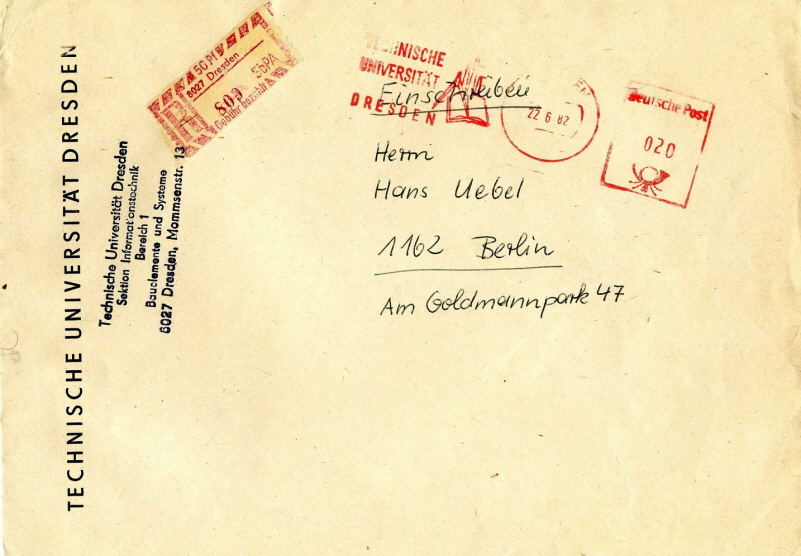 TECHNISCHE UNIVERSITÄT DRESDEN
Technische Universität Dresden
Sektion Informationstechnik
Bereich 1
Bauelemente und Systeme
8027 Dresden, Mommsenstr. 13
50 Pf
8027 Dresden
809 SbPA
Gebühr bezahlt
TECHNISCHE
UNIVERSITÄT
DRESDEN
22.6.82
Deutsche Post
020
Einschreiben
Herrn
Hans Uebel
1162 Berlin
Am Goldmannpark 47